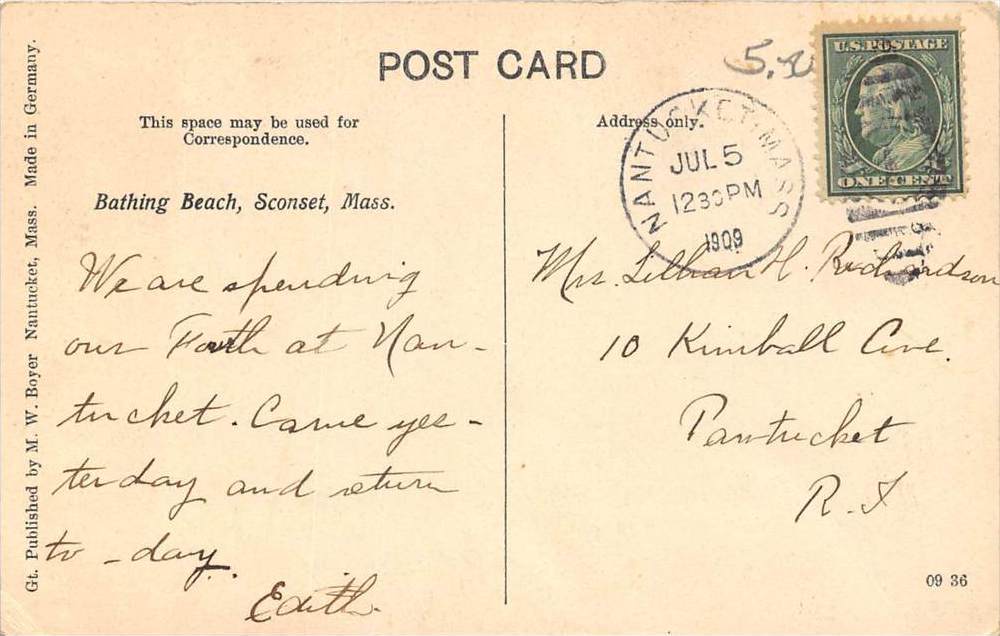 POST CARD
5.
U.S. POSTAGE
ONE CENT
This space may be used for
Correspondence.
Address only.
NANTUCKET. MASS
JUL 5
1230 PM
1909
Bathing Beach, Sconset, Mass.
We are spending
our Forth at Nan-
tucket. Came yes-
terday and return
to-day.
Edith.
Mrs. Lillian H. Richardson
10 Kimball Ave.
Pawtucket
R.I
09 36
Gt. Published by M. W. Boyer Nantucket, Mass. Made in Germany.